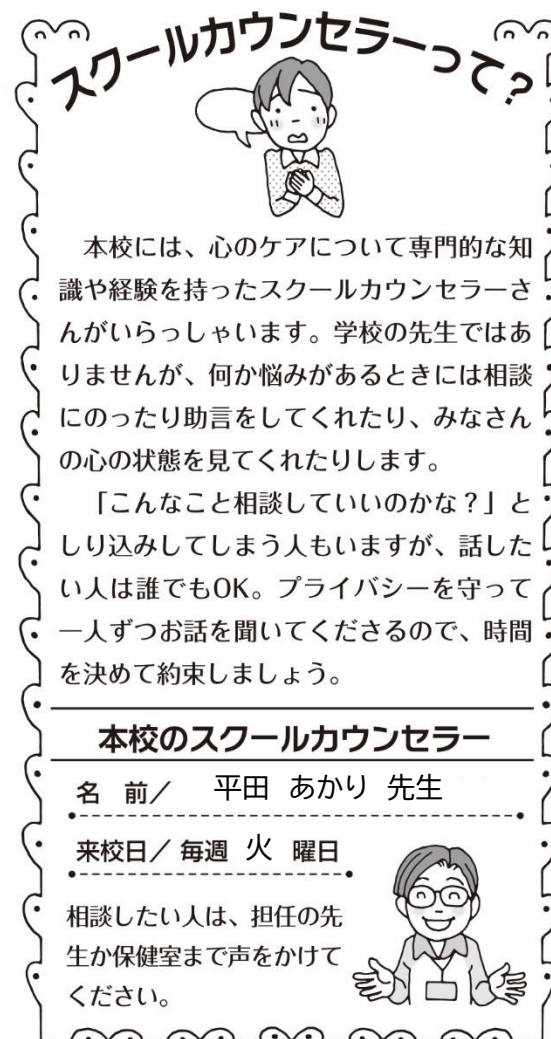 スクールカウンセラーって?
　本校には、心のケアについて専門的な知
識や経験を持ったスクールカウンセラーさ
んがいらっしゃいます。学校の先生ではあ
りませんが、何か悩みがあるときには相談
にのったり助言をしてくれたり、みなさん
の心の状態を見てくれたりします。
　「こんなこと相談していいのかな？」と
しり込みしてしまう人もいますが、話した
い人は誰でもOK。プライバシーを守って
一人ずつお話を聞いてくださるので、時間
を決めて約束しましょう。
本校のスクールカウンセラー
名　前／　平田　あかり　先生
来校日／毎週　火　曜日
相談したい人は、担任の先
生か保健室まで声をかけて
ください。